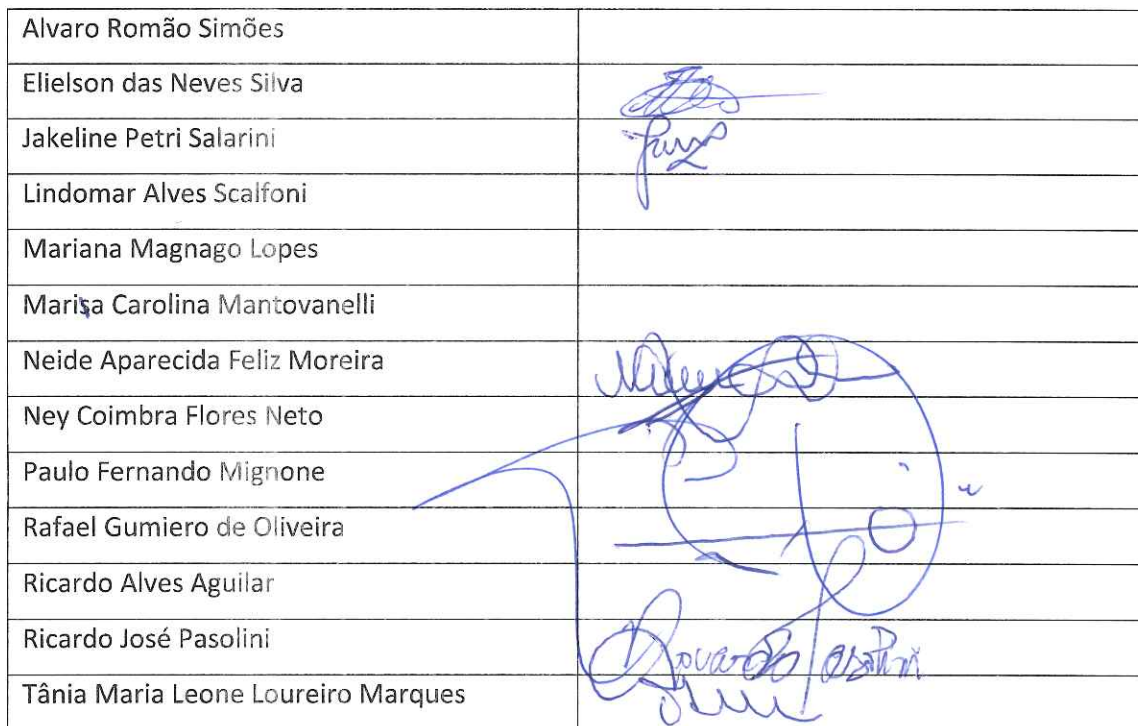 Alvaro Romão Simões
Elielson das Neves Silva
Jakeline Petri Salarini
Lindomar Alves Scalfoni
Mariana Magnago Lopes
Marisa Carolina Mantovanelli
Neide Aparecida Feliz Moreira
Ney Coimbra Flores Neto
Paulo Fernando Mignone
Rafael Gumiero de Oliveira
Ricardo Alves Aguilar
Ricardo José Pasolini
Tânia Maria Leone Loureiro Marques